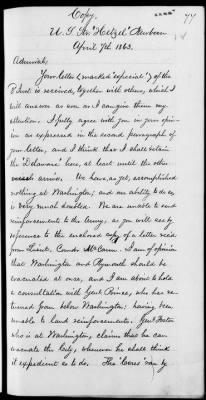 Copy.
77
U.S. Str. "Hetzel" Newbern
April 7th 1863.
Admiral;
Your letter (marked "especial") of the
8 Inst is received, together with others, which I
will answer as soon as I can give them my
attention. I fully agree with you in your opin-
ion as expressed in the second paragraph of
your letter, and I think that I shall retain
the "Delaware" here, at least until the other
arrive. We have, as yet, accomplished
nothing at Washington; and our ability to do so
is very much doubted. We are unable to send
reinforcements to the Army, as you will see by
reference to the enclosed copy of a letter rec'd
from Lieut. Comdr McCann. I am of opinion
that Washington and Plymouth should be
evacuated at once, and I am about to hold
a consultation with Genl. Prince, who has re-
turned from below Washington; having been
unable to land reinforcements. Genl. Foster
who is at Washington, claims that he can
evacuate the City, whenever he shall think
it expedient so to do. The "Ceres" ran by